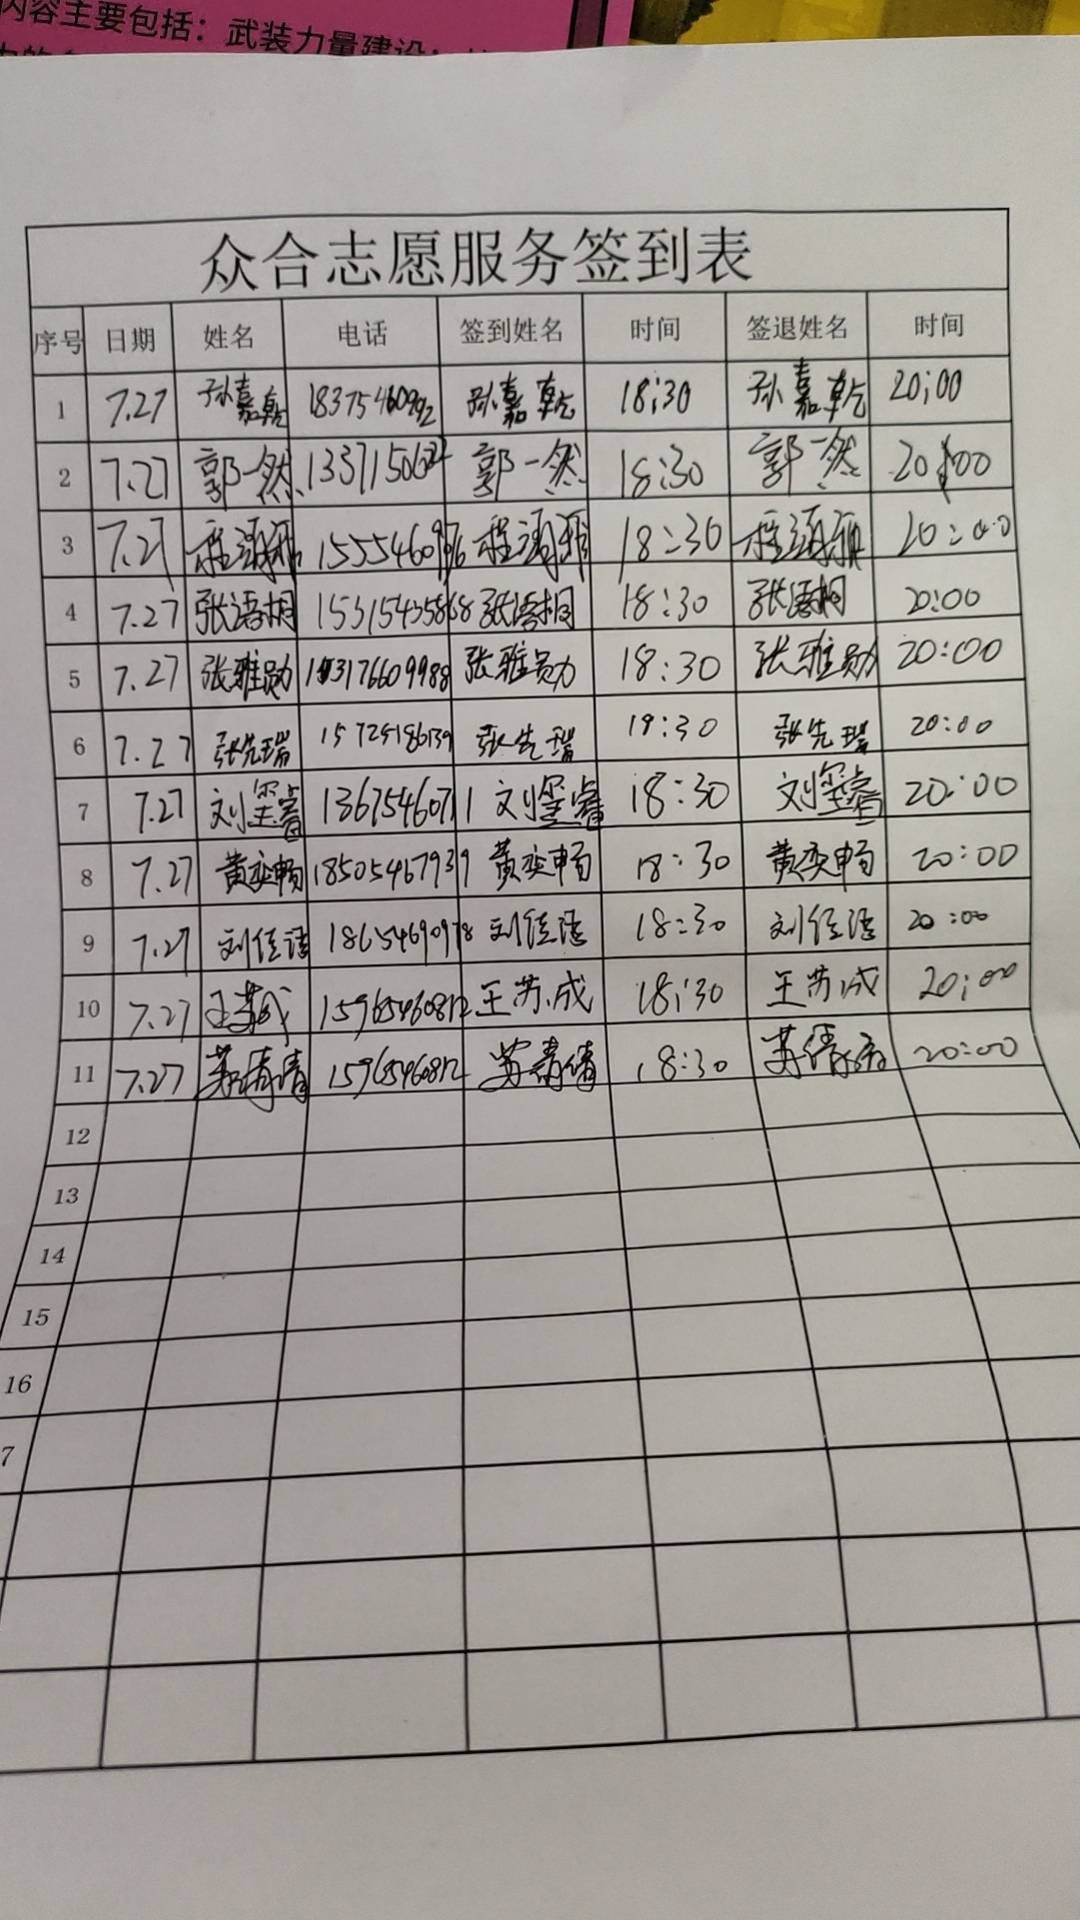 内容主要包括：武装力量建设；
众合志愿服务签到表
序号 日期 姓名 电话 签到姓名 时间 签退姓名 时间
1 7.27 孙嘉乾 孙嘉乾 18:30 孙嘉乾 20:00
2 7.27 郭一然 郭一然 18:30 郭一然 20:00
3 7.27 18:30 20:00
4 7.27 张语桐 15315435868 张语桐 18:30 张语桐 20:00
5 7.27 张雅勋 张雅勋 18:30 张雅勋 20:00
6 7.27 张先瑞 15725186139 张先瑞 18:30 张先瑞 20:00
7 7.27 刘玺睿 13675460711 刘玺睿 18:30 刘玺睿 20:00
8 7.27 黄奕畅 18505467939 黄奕畅 18:30 黄奕畅 20:00
9 7.27 18654690978 18:30 20:00
10 7.27 王苏成 15965460812 王苏成 18:30 王苏成 20:00
11 7.27 苏倩倩 15965460812 苏倩倩 18:30 苏倩倩 20:00
12
13
14
15
16
7